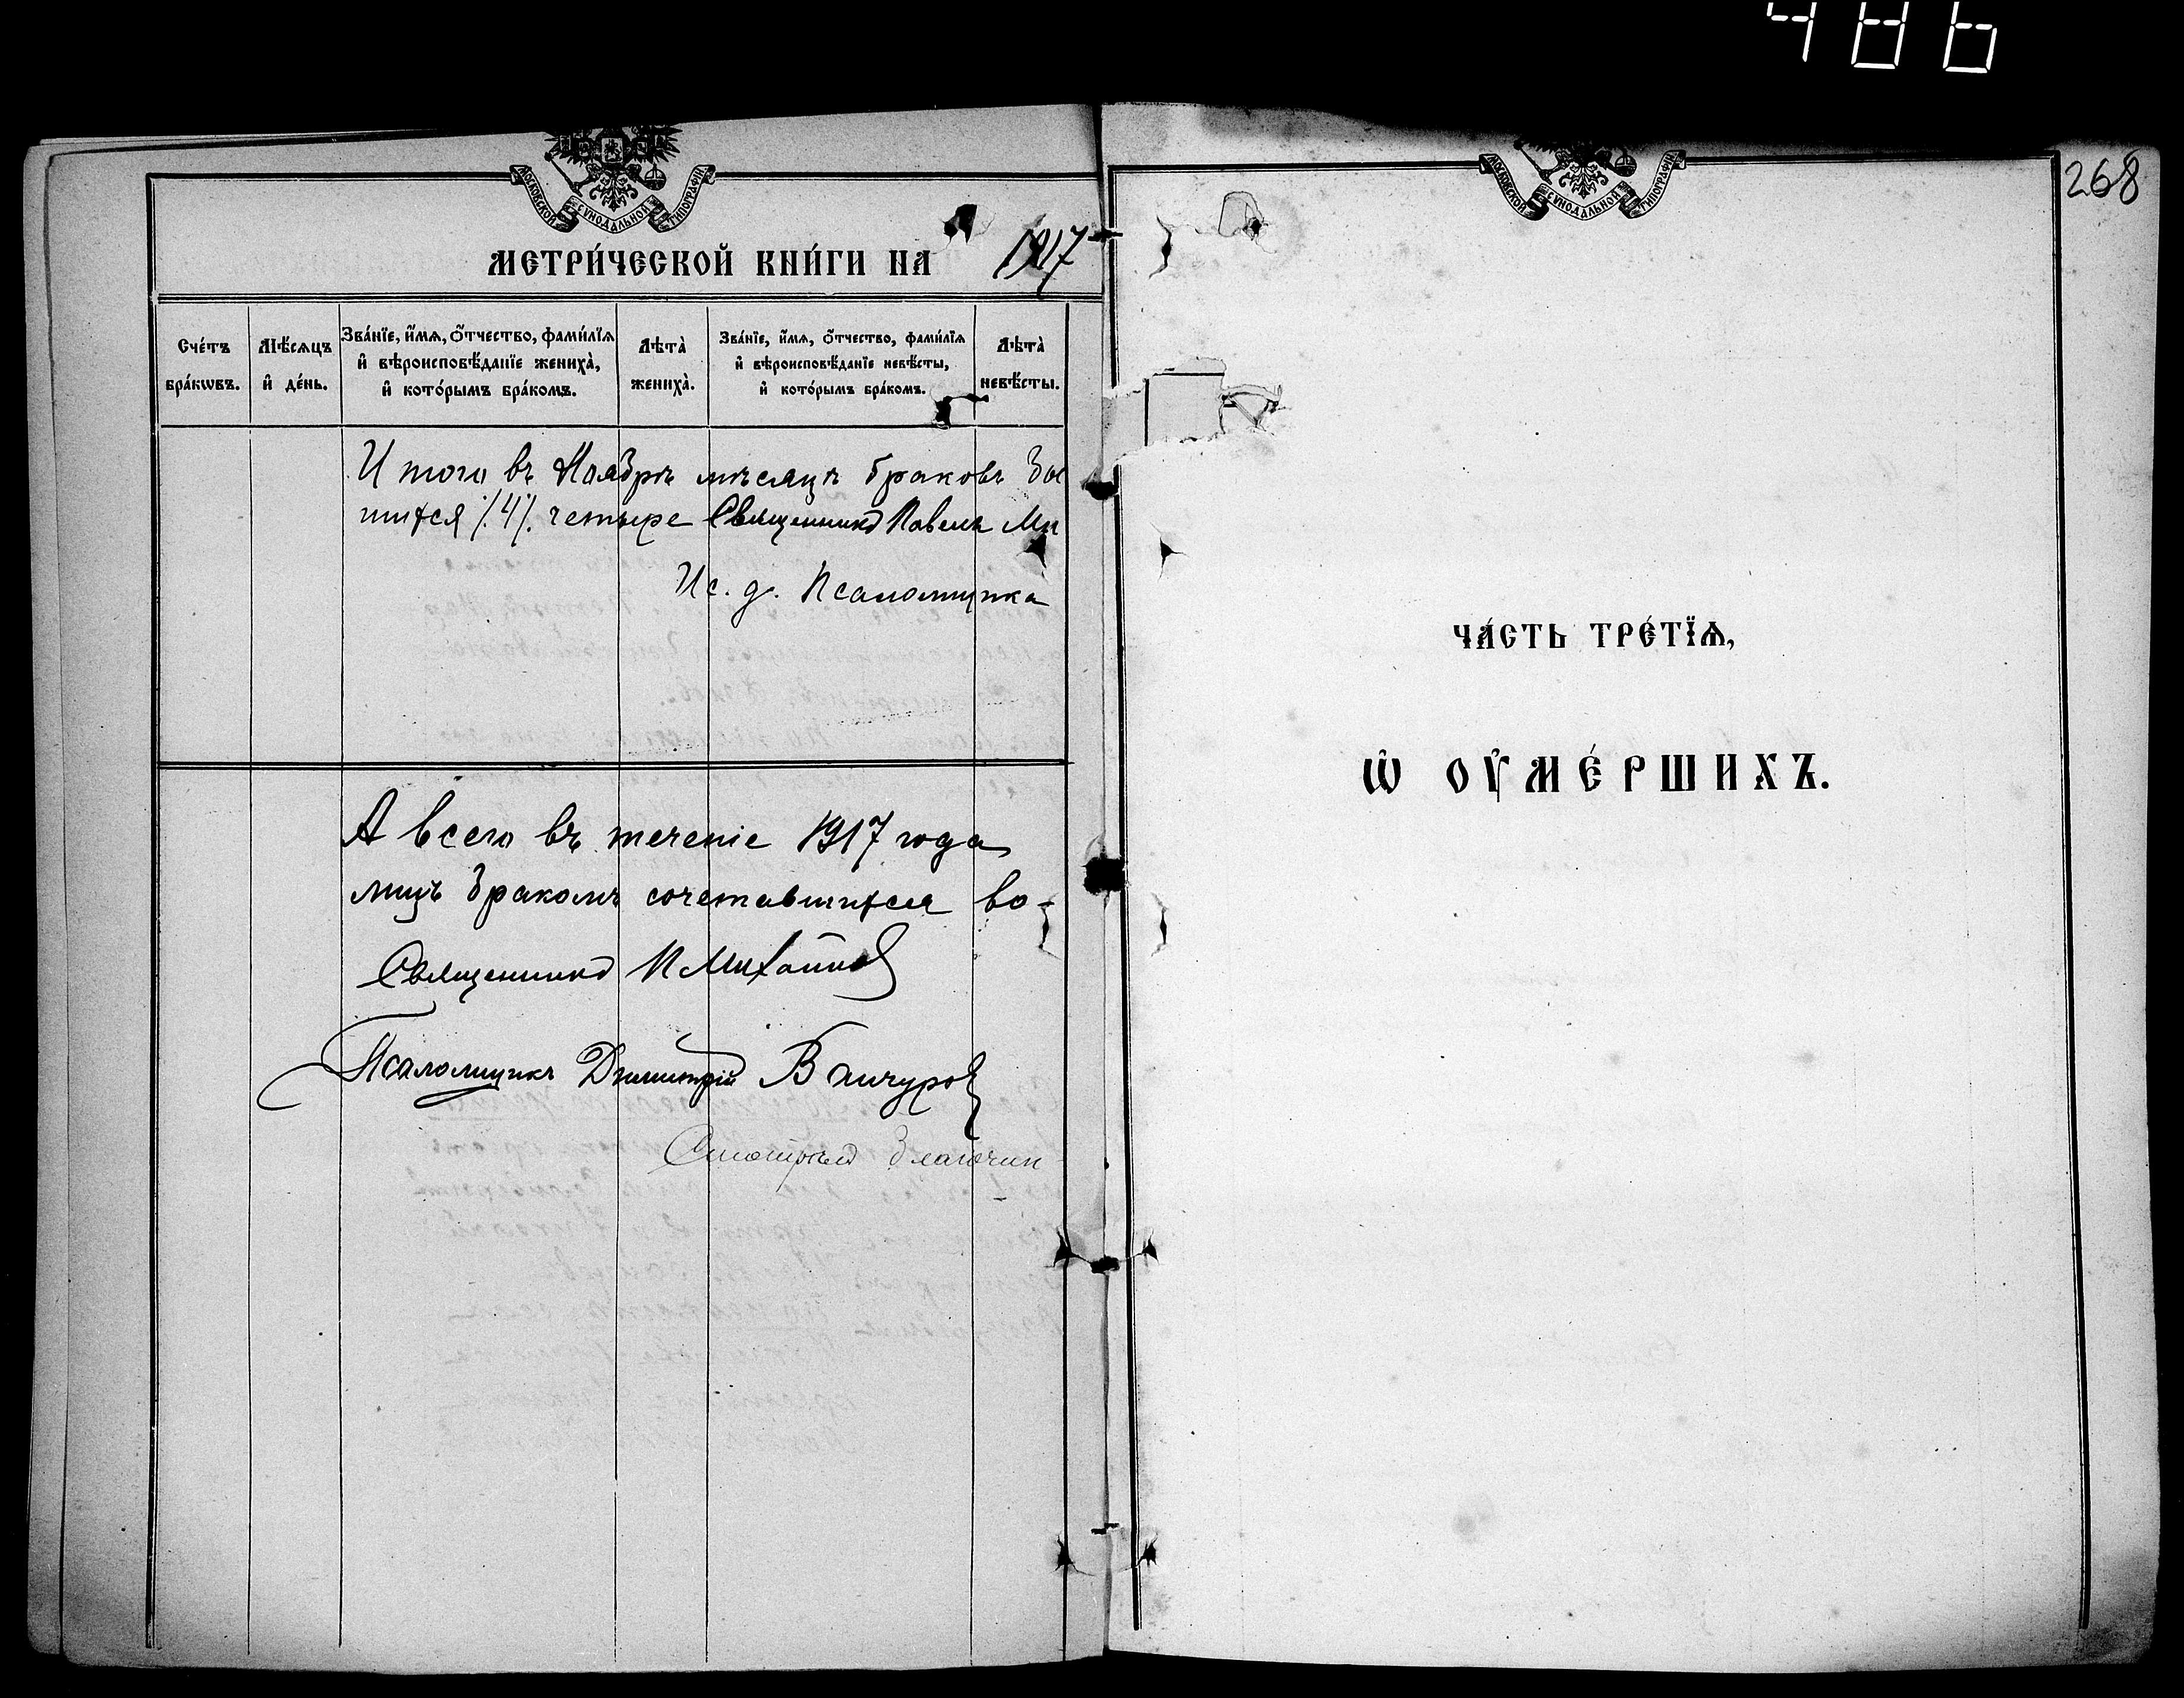 486
268
МОСКОВСКОЙ СѴНОДАЛЬНОЙ ТИПОГРАФІИ
МЕТРИ́ЧЕСКОЙ КНИ́ГИ НА 1917
Сче́тъ бра́кѡвъ.
Мѣ́сѧцъ и҆ де́нь.
Зва́нїе, и҆́мѧ, ѻ҆́тчество, фами́лїѧ
и҆ вѣроисповѣ́данїе жениха̀,
и҆ кото́рымъ бра́комъ.
Лѣта̀ жениха̀.
Зва́нїе, и҆́мѧ, ѻ҆́тчество, фами́лїѧ
и҆ вѣроисповѣ́данїе невѣ́сты,
и҆ кото́рымъ бра́комъ.
Лѣта̀ невѣ́сты.
Итого въ Ноябрѣ мѣсяцѣ браковъ
шихся /.4/. четыре Священникъ Павелъ Ми
Ис. д. Псаломщика
А всего въ теченіе 1917 года
лицъ бракомъ сочетавшихся во-
Священникъ П Михайлов
Псаломщикъ Димитрій Ванчуров
Смотрѣлъ Благочин
МОСКОВСКОЙ СѴНОДАЛЬНОЙ ТИПОГРАФІИ
ЧА́СТЬ ТРЕ́ТЇѦ,
Ѡ҆ ОУ҆МЕ́РШИХЪ.